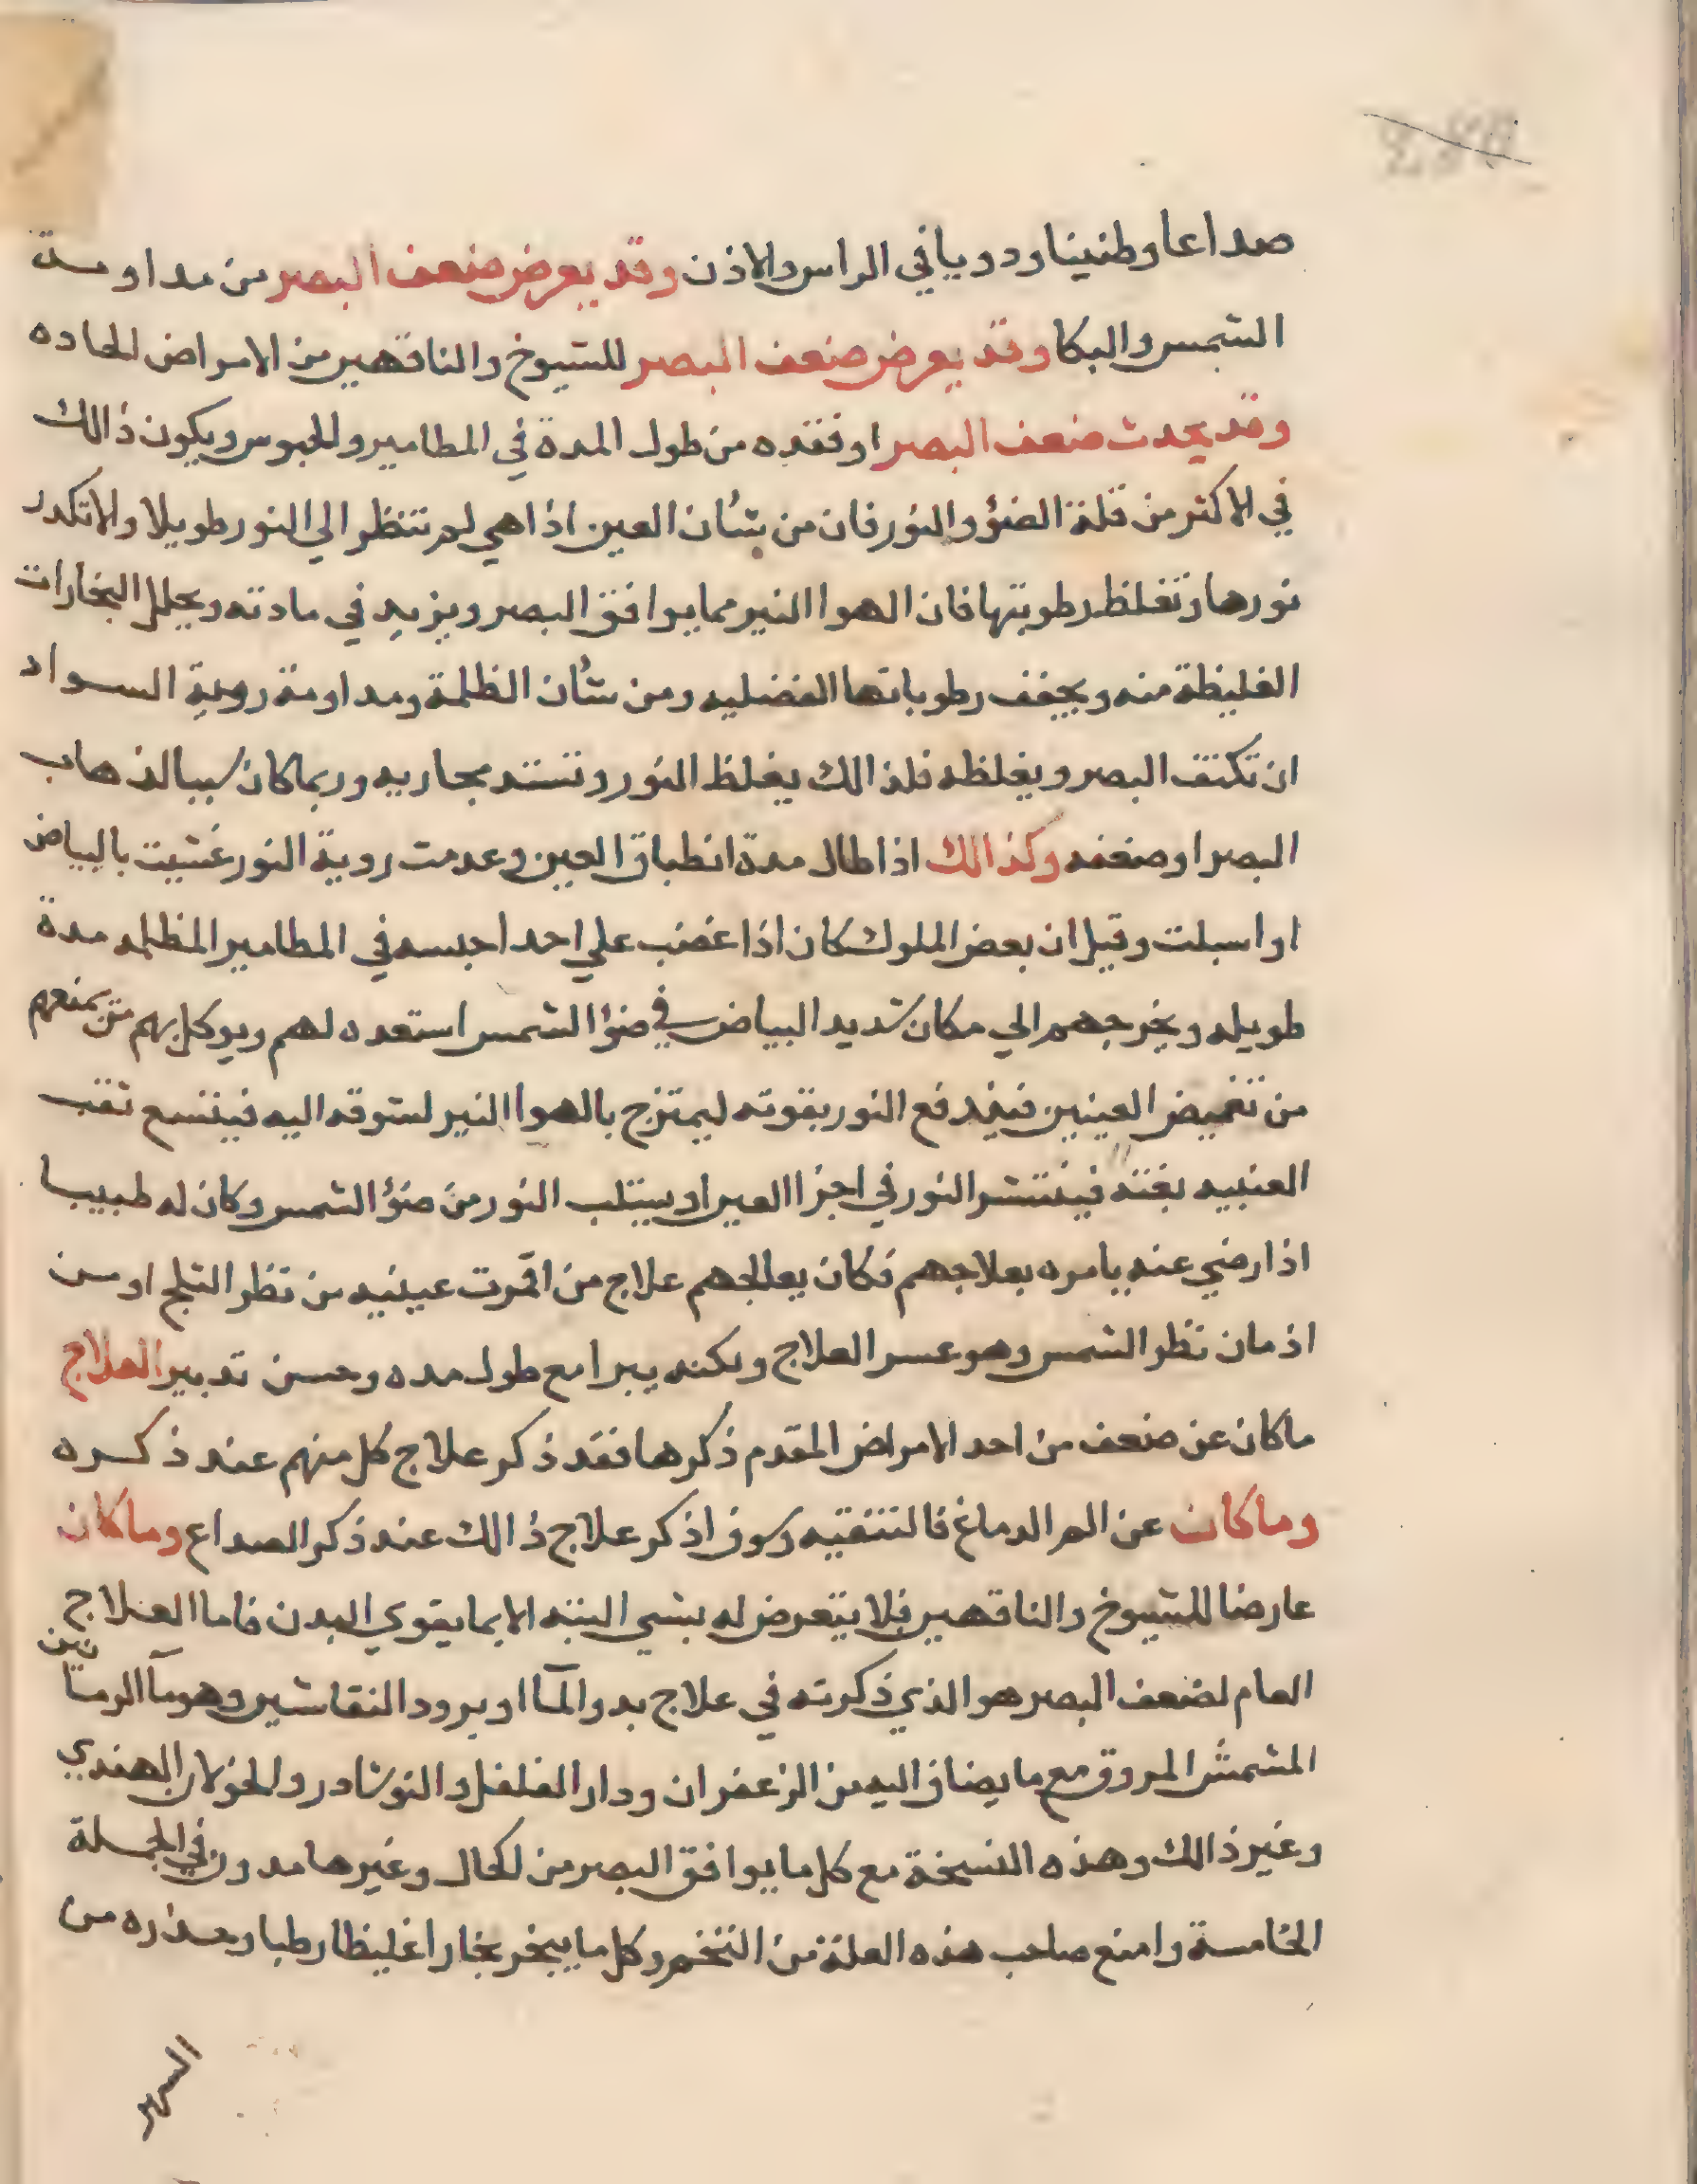 صداعا وطنينا ودويا في الراس والاذن وقد يعرض ضعف البصر من مداومة
الشمس والبكا وقد يعرض ضعف البصر للشيوخ والناقهين من الامراض الحاده
وقد يحدث ضعف البصر او فقده من طول المدة في المطامير والحبوس ويكون ذالك
في الاكثر من قلة الضؤ والنور فان من شأن العين اذا هي لم تنظر الي النور طويلا والا تكدر
نورها وتغلظ رطوبتها فان الهوا النير مما يوافق البصر ويزيد في مادته ويحلل البخارات
الغليظة منه ويجفف رطوباتها الفضليه ومن شأن الظلمة ومداومة روية السواد
ان تكثف البصر ويغلظه فلذالك يغلظ النور وتنسد مجاريه وربما كان سببا لذهاب
البصر او ضعفه وكذالك اذا طال مدة انطباق العين وعدمت روية النور غشيت بالبياض
او اسبلت وقيل ان بعض الملوك كان اذا غضب علي احد احبسه في المطامير المظلمه مدة
طويله ويخرجهم الي مكان شديد البياض في ضؤ الشمس استعده لهم ويوكل بهم من يمنعهم
من تغميض العينين فيندفع النور بقوته ليمتزج بالهوا النير لشوقه اليه فيتسع ثقب
العنبيه بغتة فينتشر النور في اجزا العين او يستلب النور من ضؤ الشمس وكان له طبيبا
اذا رضي عنه يامره بعلاجهم فكان يعالجهم علاج من اقمرت عينيه من نظر الثلج او من
اذمان نظر الشمس وهو عسر العلاج ولكنه يبرا مع طول مده وحسن تدبير العلاج
ما كان عن ضعف من احد الامراض المقدم ذكرها فقد ذكر علاج كل منهم عند ذكره
وما كان عن الم الدماغ فالتنقيه وسوف اذكر علاج ذالك عند ذكر الصداع وما كان
عارضا للشيوخ والناقهين فلا يتعرض له بشي البته الا بما يقوي البدن فاما العلاج
العام لضعف البصر هو الذي ذكرته في علاج بدو المآ او برود النقاشين وهو مآ الرمانين
المشمش المروق مع ما يضاف اليه من الزعفران ودار الفلفل والنوشادر والخولان الهندي
وغير ذالك وهذه النسخة مع كل ما يوافق البصر من لكحال وغيرها مدون في الجملة
الخامسة وامنع صاحب هذه العلة من التخم وكل ما يبخر بخارا غليظا رطبا وحذره من
السهر